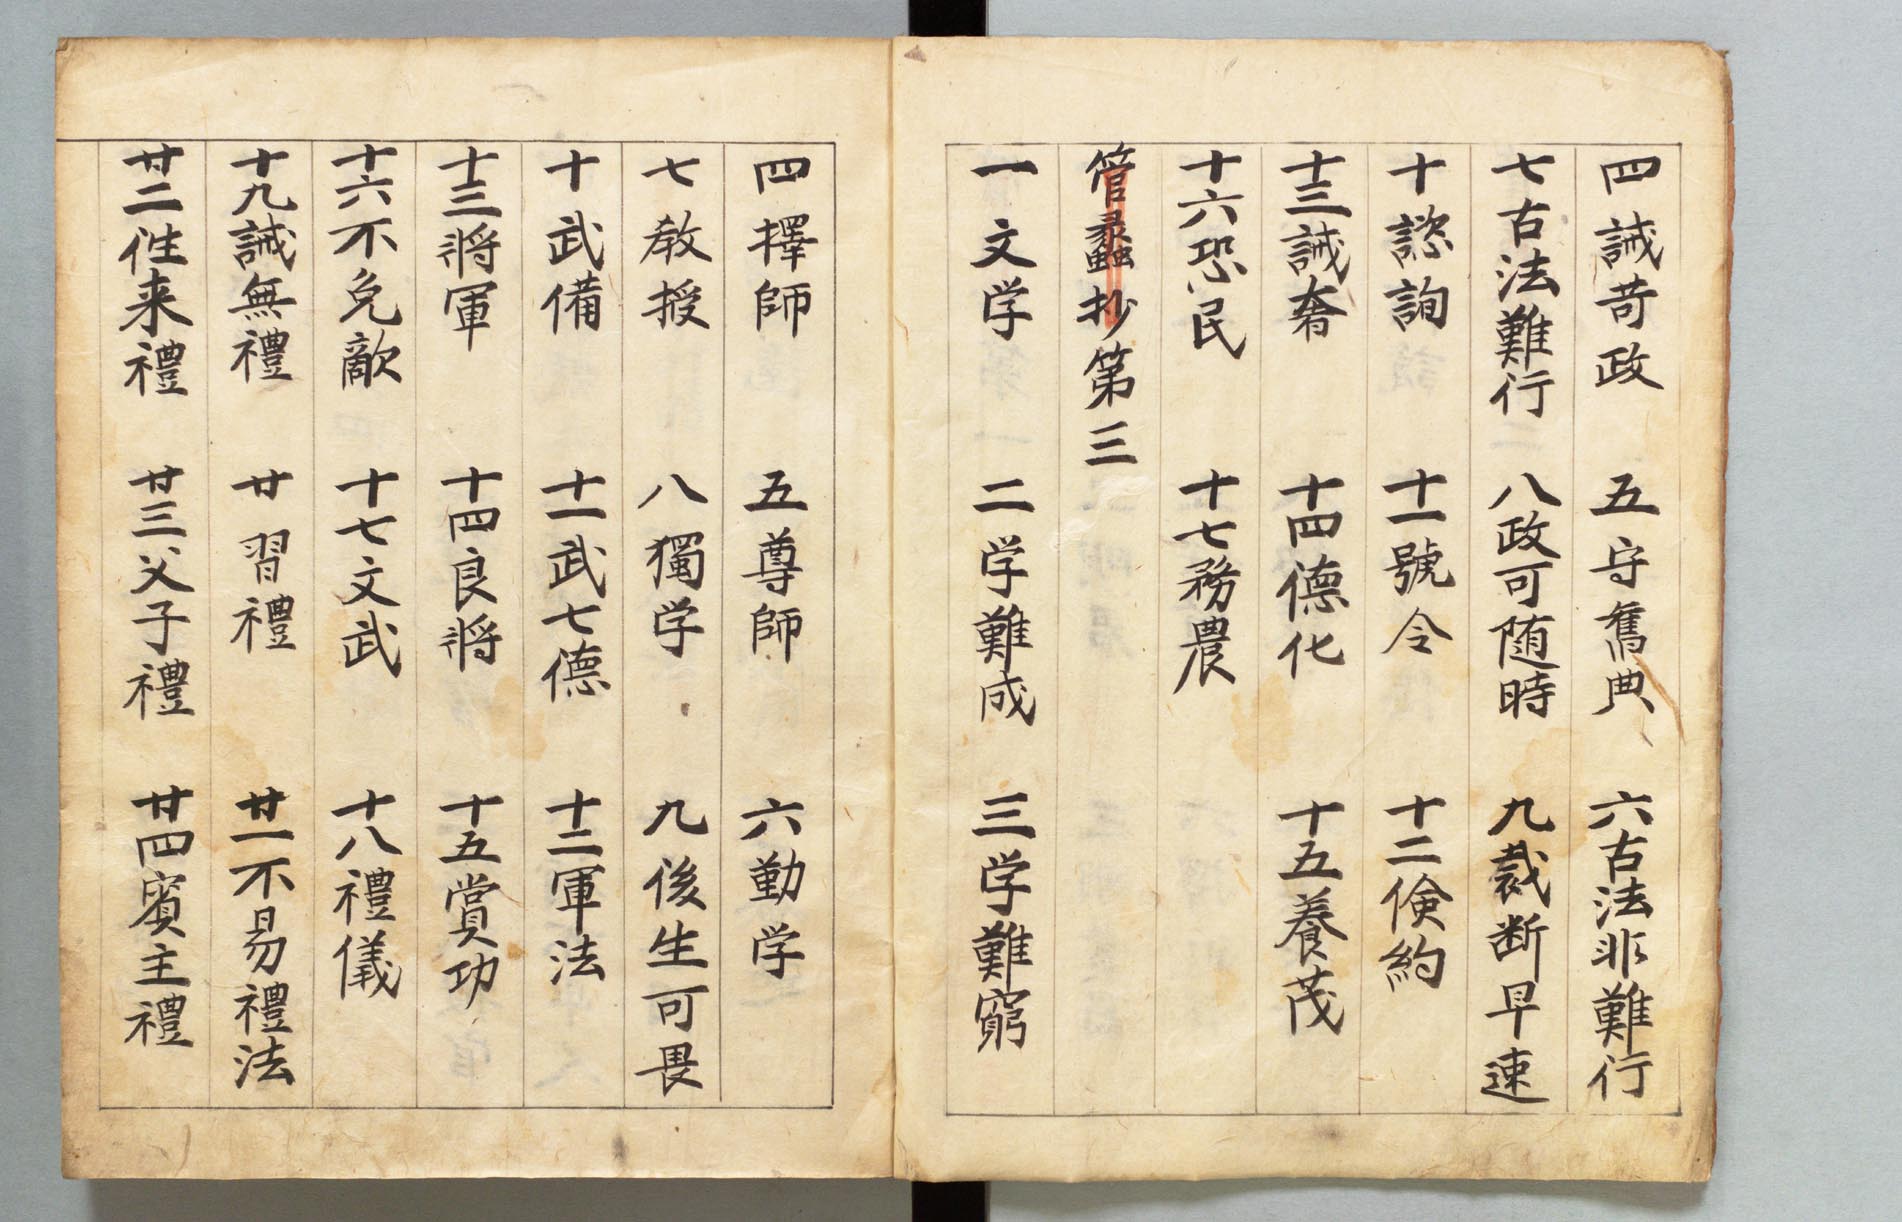 四誡苛政　五守舊典　六古法非難行
七古法難行　八政可随時　九裁断早速
十諮詢　十一號令　十二儉約
十三誡奢　十四德化　十五養茂
十六恐民　十七務農
管蠡抄第三
一文学　二学難成　三学難窮
四擇師　五尊師　六勤学
七教授　八獨学　九後生可畏
十武備　十一武七德　十二軍法
十三将軍　十四良将　十五賞功
十六不免敵　十七文武　十八禮儀
十九誡無禮　廿習禮　廿一不易禮法
廿二往来禮　廿三父子禮　廿四賓主禮